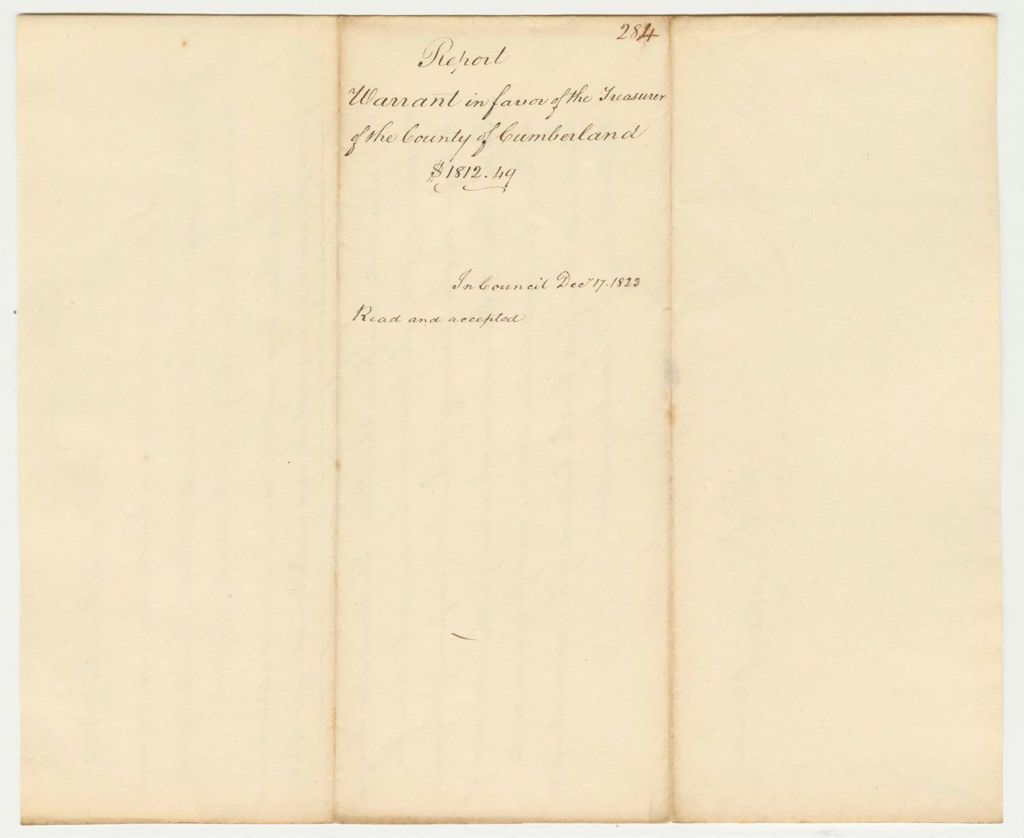 284
Report
Warrant in favor of the Treasurer
of the County of Cumberland
$1812.49
In Council Decr 17. 1823
Read and accepted